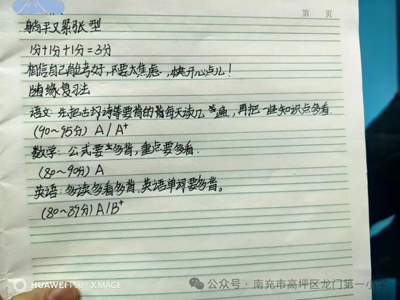 第 页
躺平又紧张型
1分+1分+1分=3分
相信自己能考好,不要太焦虑,快开心点儿!
随练复习法
语文:先把古诗词等要背的每天读几遍,再把一些知识点多看.
(90~95分) A/A⁺
数学:公式要多背,重点要多看.
(80~90分) A
英语:多读多看多背,英语单词要多背。
(80~89分) A/B⁺
HUAWEI P60 | X.MAGE
公众号·南充市高坪区龙门第一小学